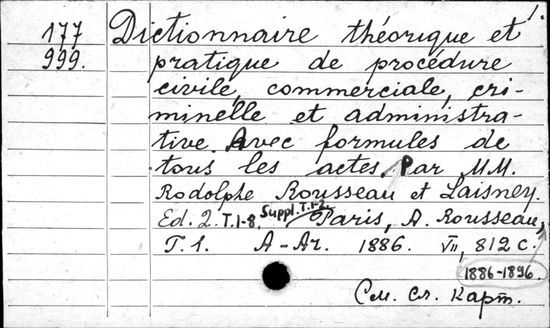 1.
177 Dictionnaire théorique et
999. pratique de procédure
civile, commerciale, cri-
minelle et administra-
tive. Avec formules de
tous les actes. Par MM.
Rodolphe Rousseau et Laisney.
Ed. 2. T. 1-8, Suppl. T. 1-2. Paris, A. Rousseau,
T. 1. A-Ar. 1886. VII, 812 c.
1886-1896.
См. сл. карт.